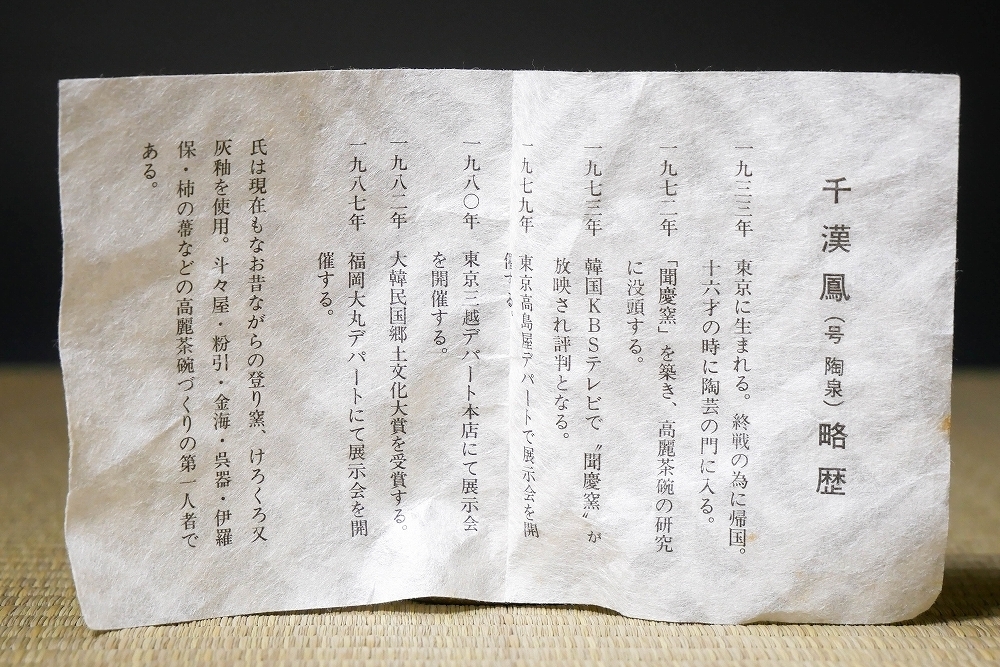 千漢鳳（号 陶泉）略歴
一九三三年　東京に生まれる。終戦の為に帰国。
十六才の時に陶芸の門に入る。
一九七二年　「聞慶窯」を築き、高麗茶碗の研究
に没頭する。
一九七三年　韓国KBSテレビで〝聞慶窯〟が
放映され評判となる。
一九七九年　東京高島屋デパートで展示会を開
催する。
一九八〇年　東京三越デパート本店にて展示会
を開催する。
一九八二年　大韓民国郷土文化大賞を受賞する。
一九八七年　福岡大丸デパートにて展示会を開
催する。
氏は現在もなお昔ながらの登り窯、けろくろ又
灰釉を使用。斗々屋・粉引・金海・呉器・伊羅
保・柿の蔕などの高麗茶碗づくりの第一人者で
ある。